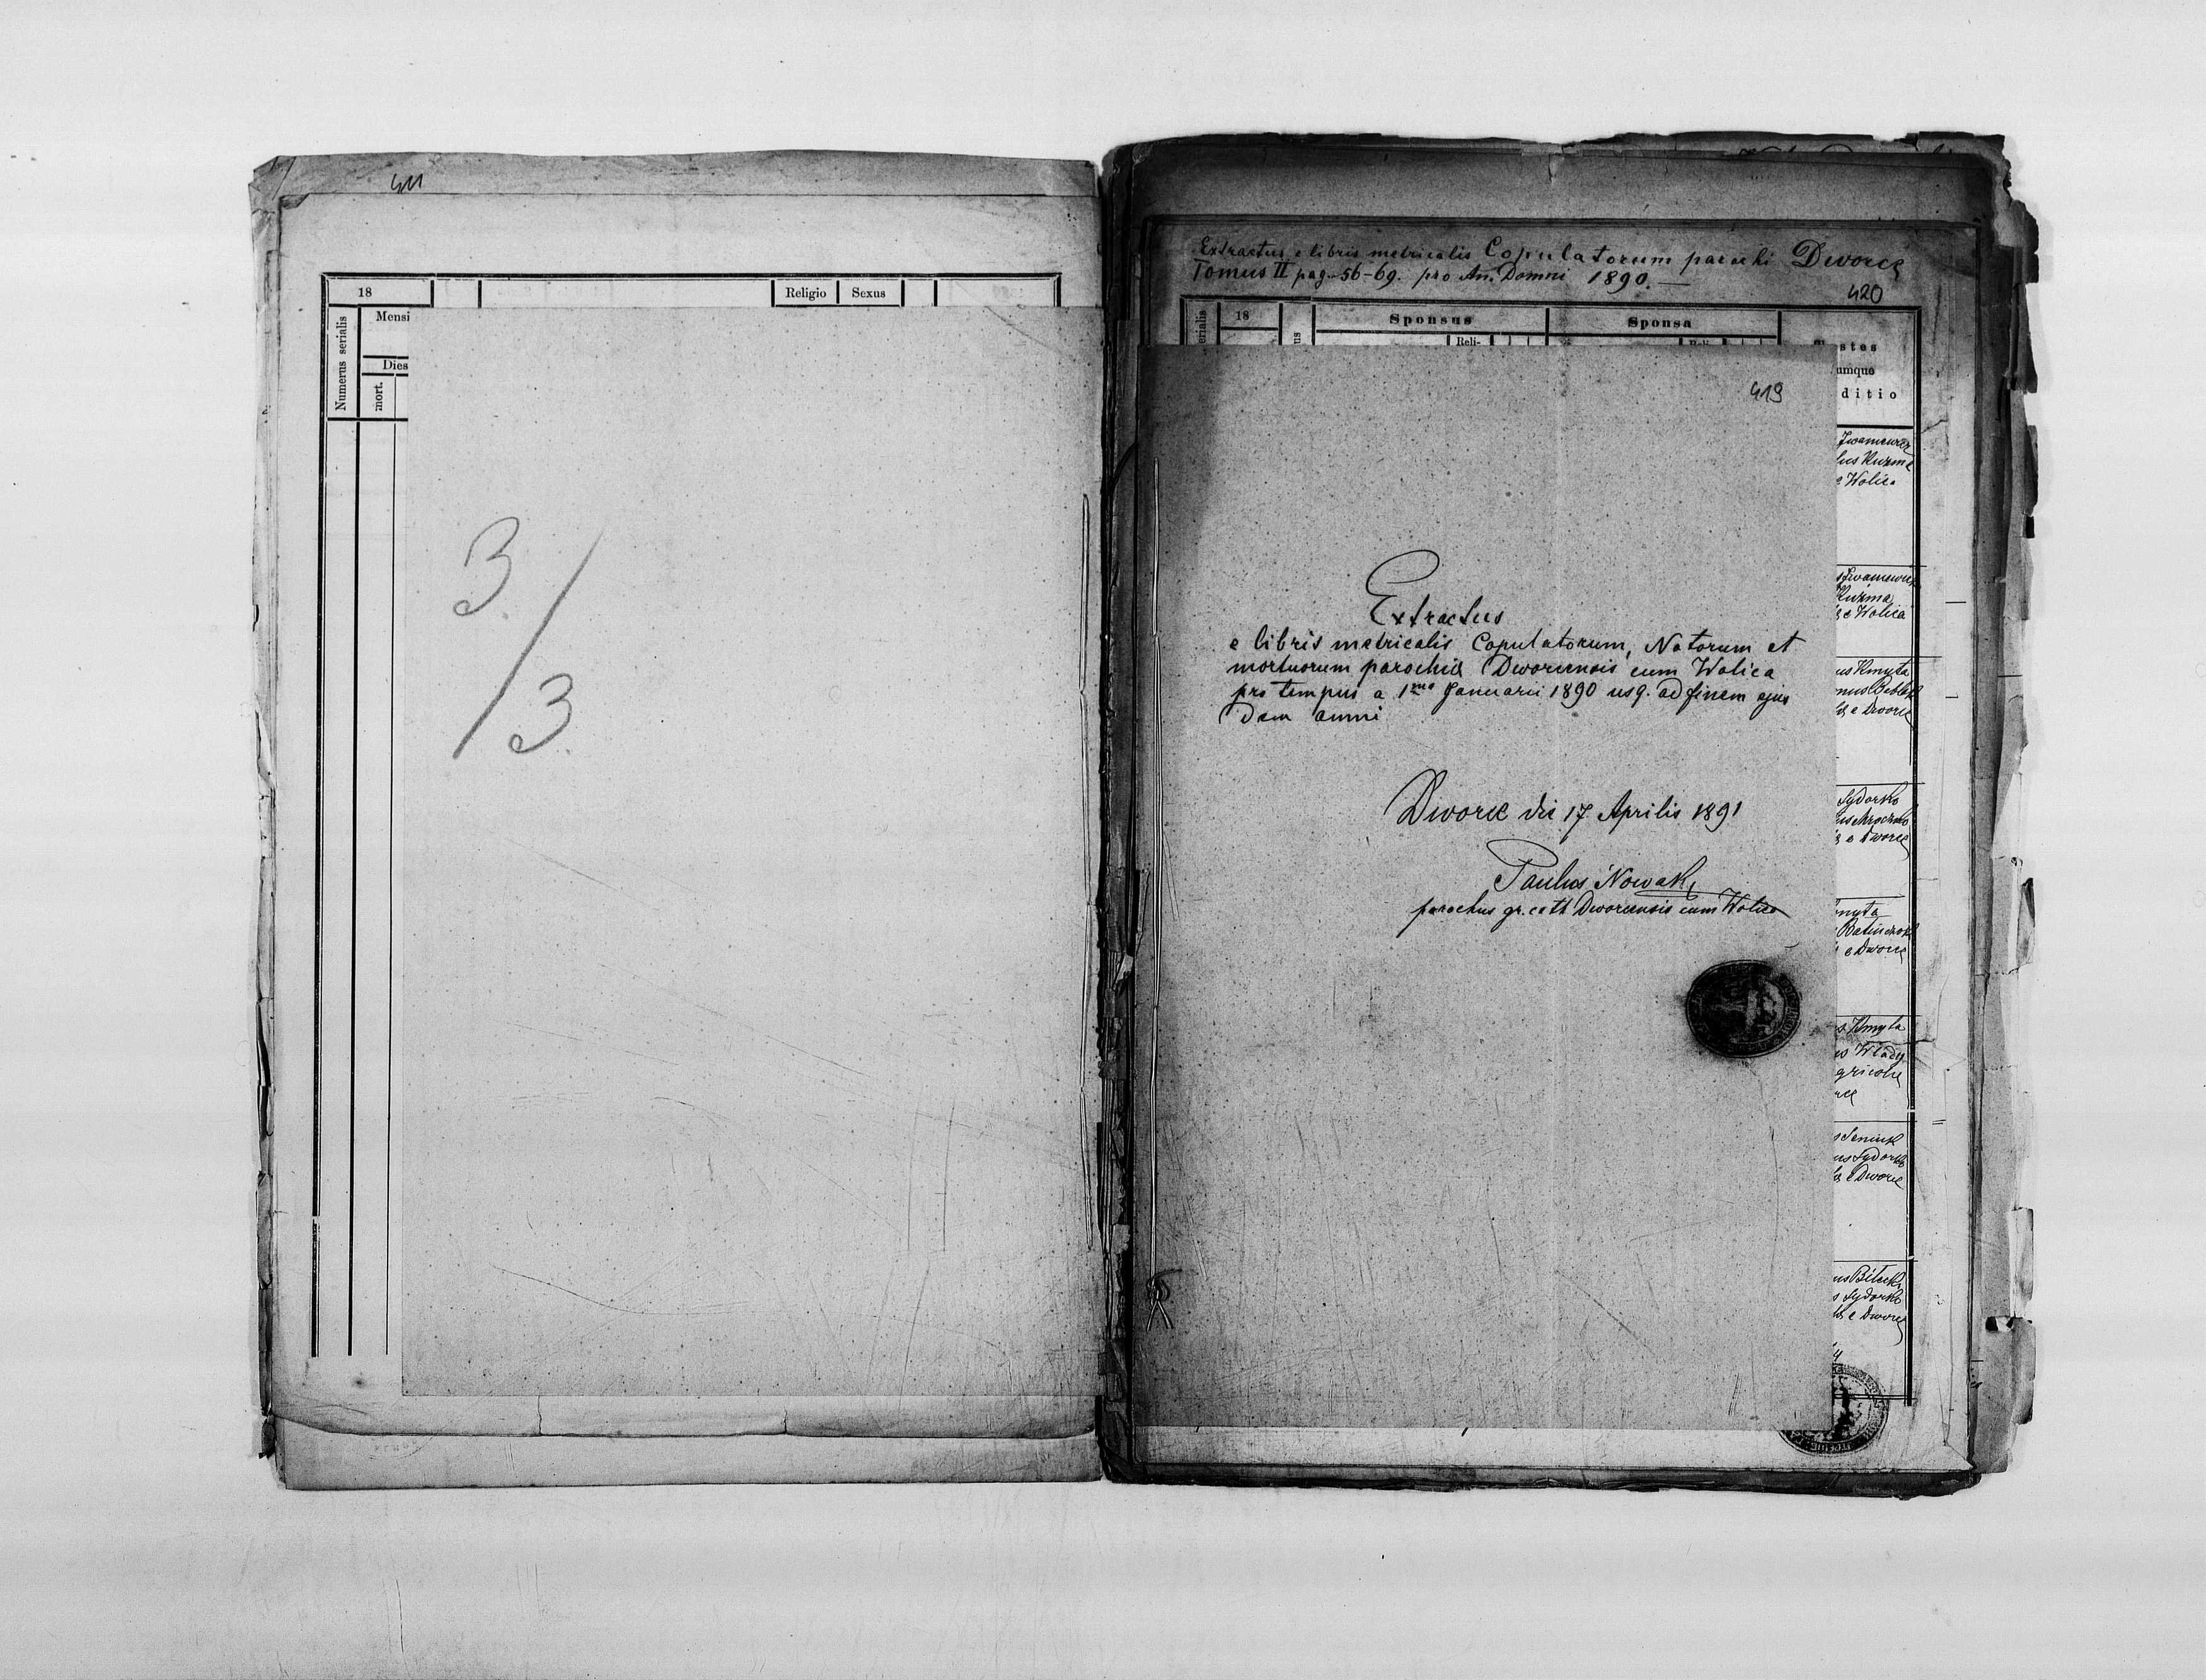 18
Religio
Sexus
Numerus serialis
Mensi
Dies
mort.
3/3
Extractus e libris metricalis Copulatorum parochi Dworce
Tomus II pag. 56-69. pro An. Domni 1890. —
420
erialis
18
us
Sponsus
Sponsa
Reli-
stes
umque
ditio
419
Extractus
e libris metricalis Copulatorum, Natorum et
mortuorum parochia Dworcensis cum Wolica
pro tempus a 1mo Januarii 1890 usq. ad finem ejus
dem anni
Dworce die 17 Aprilis 1891
Paulus Nowak
parochus gr. cath Dworcensis cum Wolica
lus Kuzma
e Wolica
Kuzma
e Wolica
us Kmyta
e Dworce
Sydorko
e Dworce
myta
e Dworce
s Kmyta
us Wlady
gricola
rce
s Seniuk
us Sydorko
e Dworce
s Sydorko
e Dworce